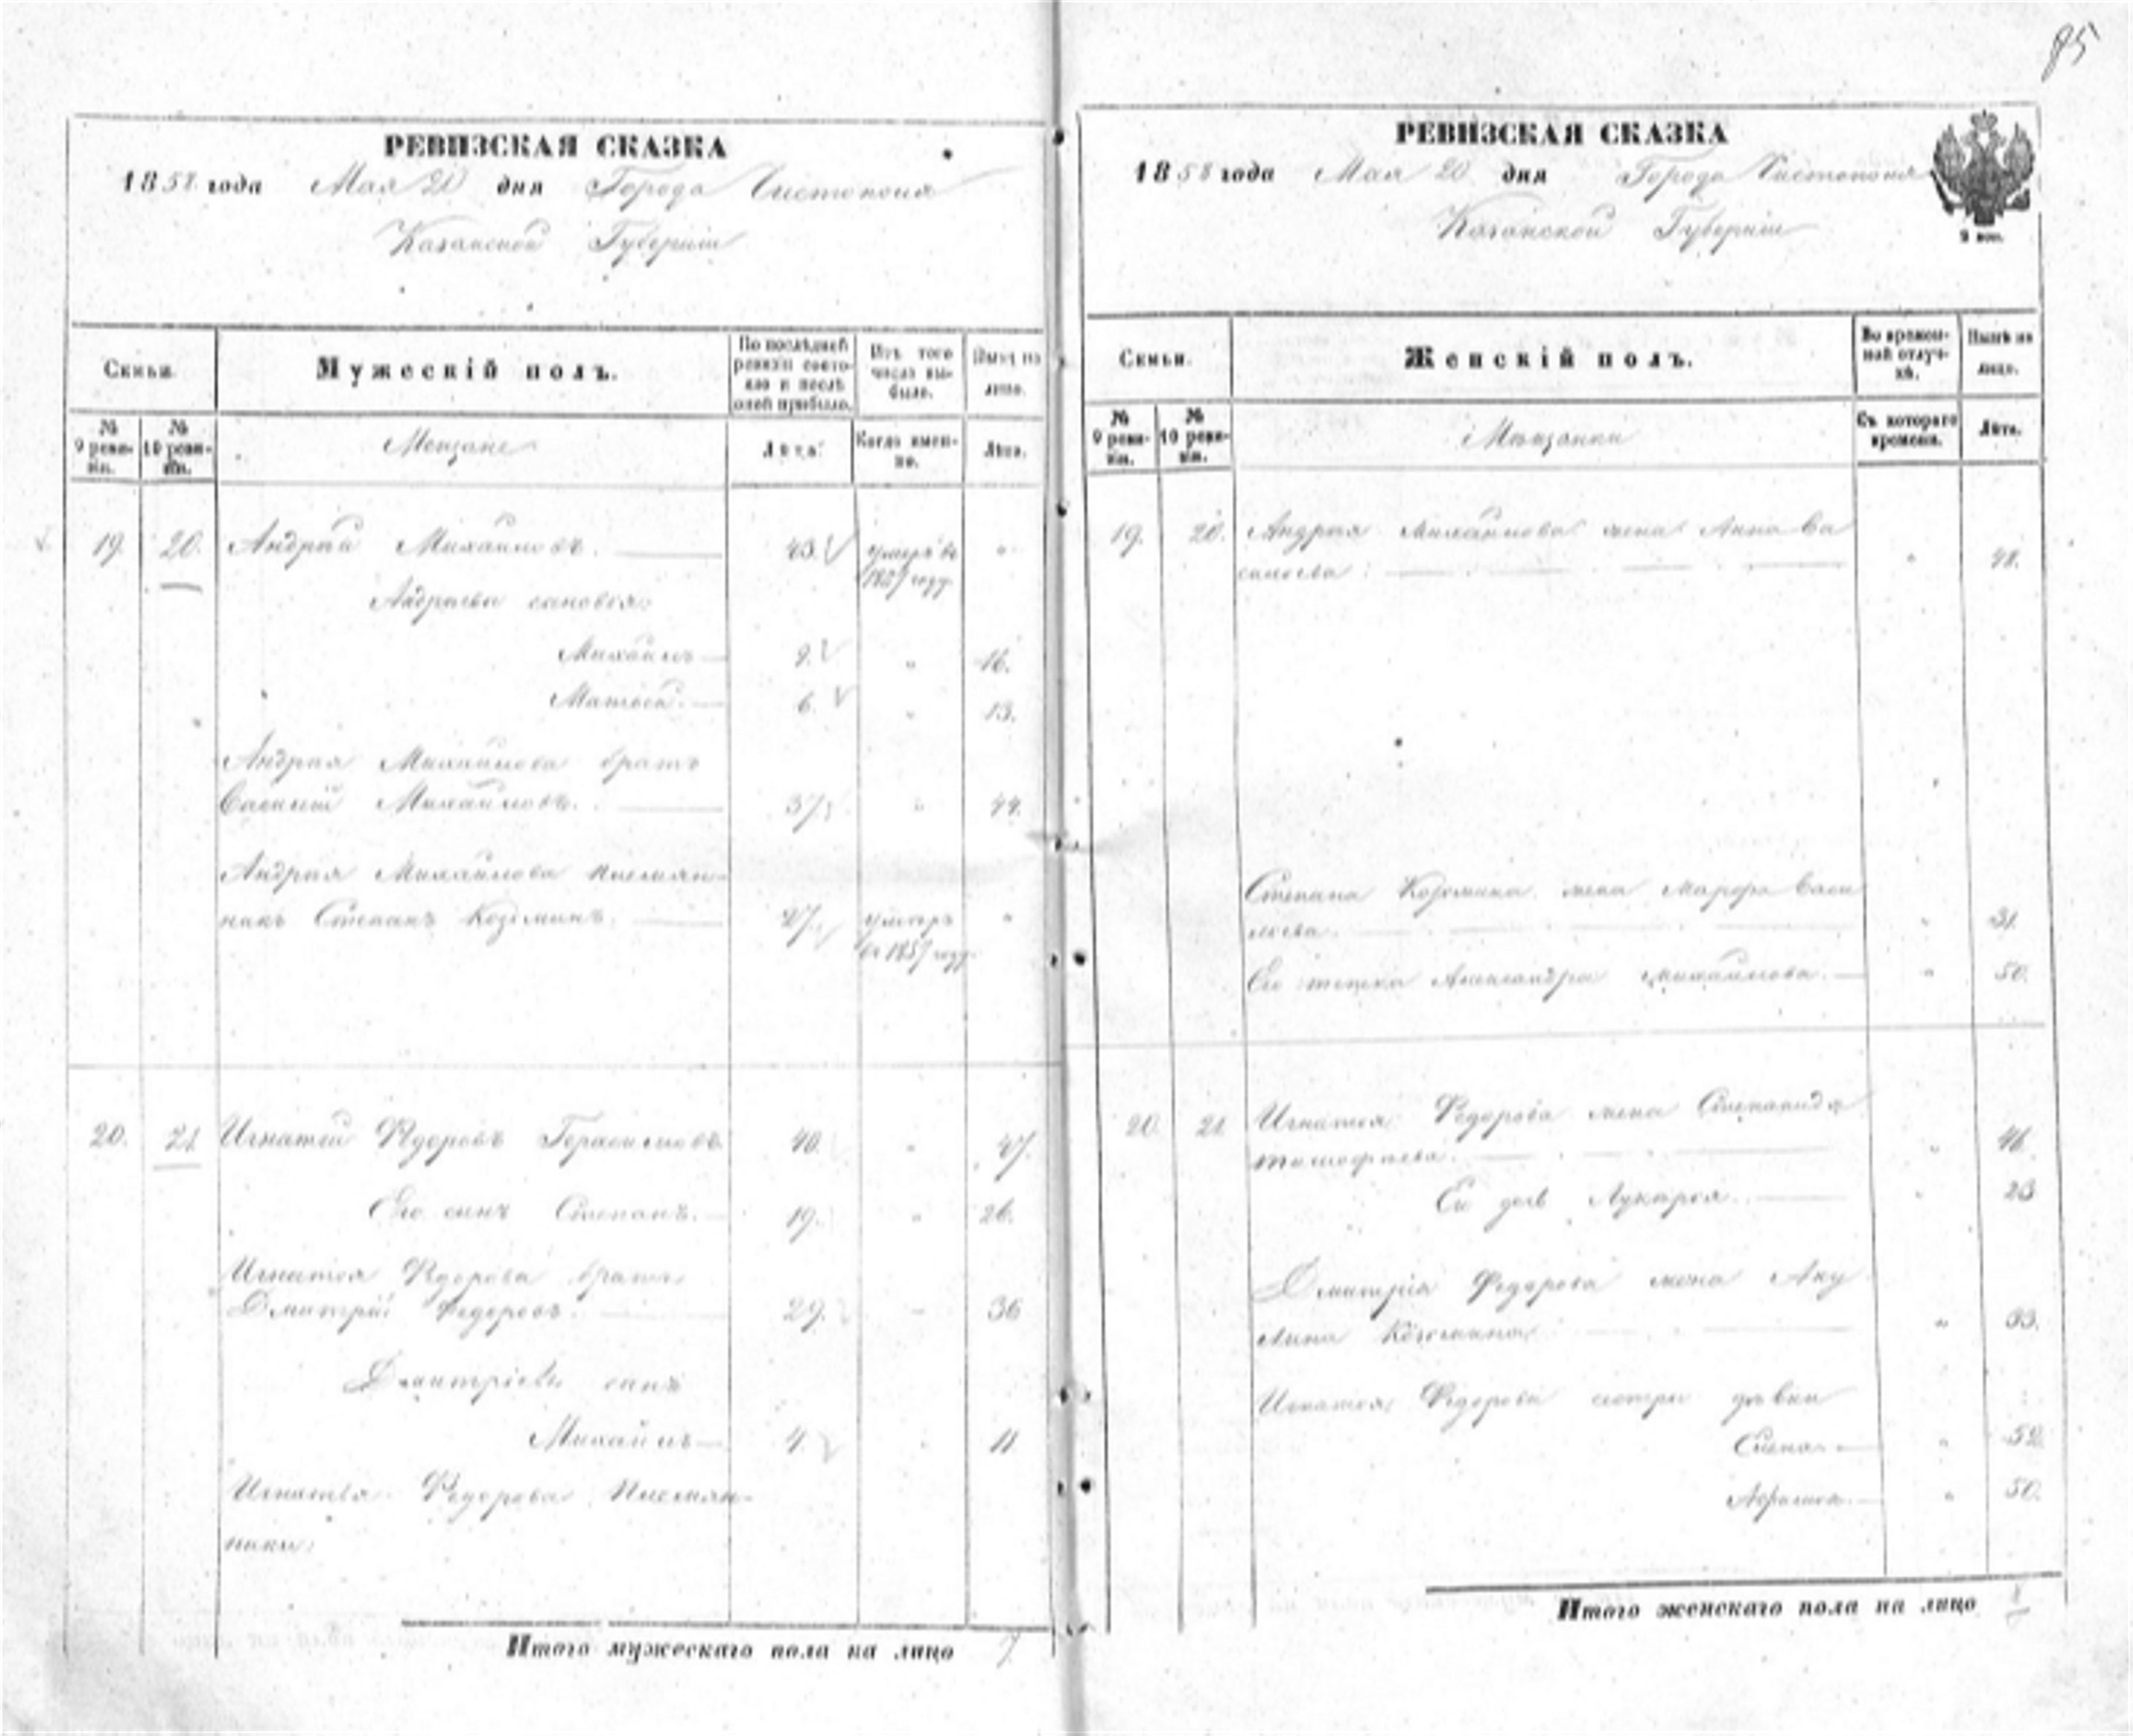 85
РЕВИЗСКАЯ СКАЗКА
1858 года Мая 20 дня Города Чистополя
Казанской Губернии
Семьи.
Мужескій полъ.
По послѣдней ревизіи состояло и послѣ оной прибыло.
Изъ того числа выбыло.
Нынѣ на лицо.
№ 9 ревизіи.
№ 10 ревизіи.
Мещане
Лѣта.
Когда именно.
Лѣта.
19. 20. Андрей Михайловъ. 43. умеръ въ "
1857 году.
Андреевы сыновья:
Михайлъ 9. " 16.
Матвей. 6. " 13.
Андрея Михайлова братъ
Василий Михайловъ. 37. " 44.
Андрея Михайлова племян-
никъ Степанъ Козминъ. 27. умеръ "
въ 1857 году.
20. 21. Игнатий Федоровъ Герасимовъ. 40. " 47.
Его сынъ Степанъ. 19. " 26.
Игнатья Федорова братъ
Дмитрий Федоровъ. 29. " 36
Дмитріевъ сынъ
Михайлъ 4. " 11
Игнатья Федорова племян-
ники:
Итого мужескаго пола на лицо 7
РЕВИЗСКАЯ СКАЗКА
1858 года Мая 20 дня Города Чистополя
Казанской Губернии
2 коп.
Семьи.
Женскій полъ.
Во временной отлучкѣ.
Нынѣ на лицо.
№ 9 ревизіи.
№ 10 ревизіи.
Мещанки
Съ котораго времени.
Лѣта.
19. 20. Андрея Михайлова жена Анна Ва
сильева " 48.
Степана Козмина жена Марфа Васи
льева. " 31.
Его тетка Александра Михайлова. " 50.
20. 21. Игнатья Федорова жена Степанида
Тимофеева. " 46.
Ея дочь Лукерья. " 23
Дмитрія Федорова жена Аку
лина Козмина " 33.
Игнатья Федорова сестры дѣвки
" 52.
" 50.
Итого женскаго пола на лицо